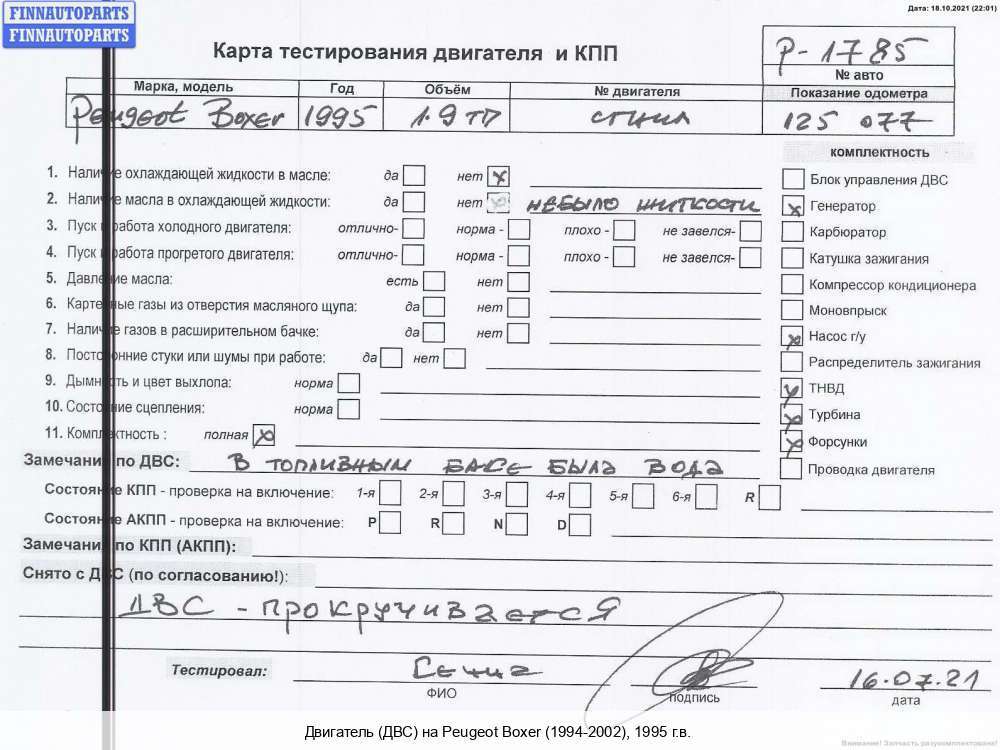 FINNAUTOPARTS
FINNAUTOPARTS
Дата: 18.10.2021 (22:01)
Карта тестирования двигателя и КПП
P-1785
№ авто
Марка, модель Год Объём № двигателя Показание одометра
Peugeot Boxer 1995 1.9 тд сгнил 125 077
комплектность
1. Наличие охлаждающей жидкости в масле: да нет x
Блок управления ДВС
2. Наличие масла в охлаждающей жидкости: да нет x небыло житкости
x Генератор
3. Пуск и работа холодного двигателя: отлично- норма - плохо - не завелся-
Карбюратор
4. Пуск и работа прогретого двигателя: отлично- норма - плохо - не завелся-
Катушка зажигания
5. Давление масла: есть нет
Компрессор кондиционера
6. Картерные газы из отверстия масляного щупа: да нет
Моновпрыск
7. Наличие газов в расширительном бачке: да нет
x Насос г/у
8. Посторонние стуки или шумы при работе: да нет
Распределитель зажигания
9. Дымность и цвет выхлопа: норма
x ТНВД
10. Состояние сцепления: норма
x Турбина
11. Комплектность : полная x
x Форсунки
Замечания по ДВС: в топливным баке была вода
Проводка двигателя
Состояние КПП - проверка на включение: 1-я 2-я 3-я 4-я 5-я 6-я R
Состояние АКПП - проверка на включение: P R N D
Замечания по КПП (АКПП):
Снято с ДВС (по согласованию!):
ДВС - прокручивается
Тестировал: 16.07.21
ФИО подпись дата
Двигатель (ДВС) на Peugeot Boxer (1994-2002), 1995 г.в.
Внимание! Запчасть разукомплектована!